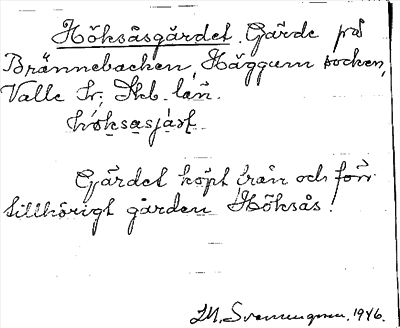 Höksåsgärdet. Gärde på
Brännebacken, Häggum socken,
Valle hr; Skb. län.
Gärdet köpt från och förr
tillhörigt gården Höksås.
M. Svenungsson. 1946.